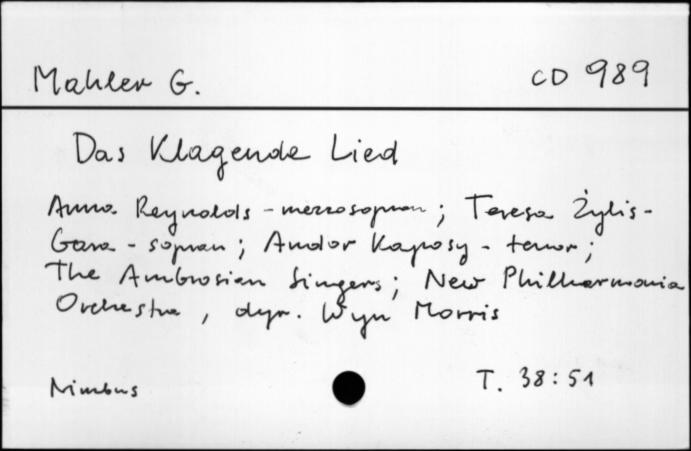 Mahler G. CD 989
Das Klagende Lied
Anna Reynolds - mezzosopran; Teresa Żylis-
Gara - sopran; Andor Kaposy - tenor;
The Ambrosian Singers; New Philharmonia
Orchestra, dyr. Wyn Morris
Nimbus T. 38:51